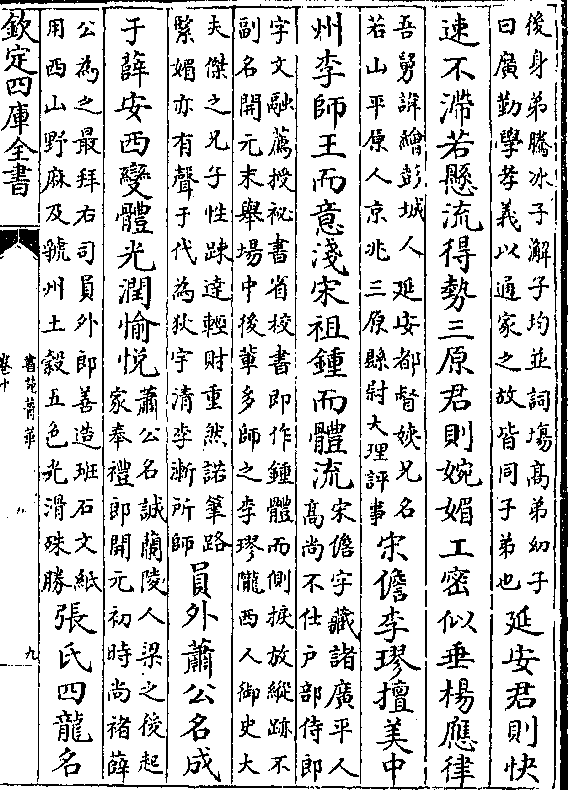 後身弟騰冰子澥子均並詞塲髙弟幼子
曰廣勤學孝義以通家之故皆同子弟也
延安君則快
速不滯若懸流得勢三原君則婉媚工密似垂楊應律
吾舅諱繪彭城人延安都督姨兄名
若山平原人京兆三原縣尉大理評事
宋儋李璆擅美中
州李師王而意淺宋祖鍾而體流
宋儋字藏諸廣平人
髙尚不仕户部侍郎
字文融薦授祕書省校書即作鍾體而側捩放縱跡不
副名開元末舉塲中後輩多師之李璆隴西人御史大
夫傑之兄子性踈達輕財重然諾筆路
緊媚亦有聲于代為狄字清李漸所師
員外蕭公名成
于薛安西變體光潤愉悦
蕭公名誠蘭陵人梁之後起
家奉禮郎開元初時尚褚薛
公為之最拜右司員外郎善造班石文紙
用西山野麻及虢州土榖五色光滑殊勝
張氏四龍名
欽定四庫全書
書苑菁華
卷十
九